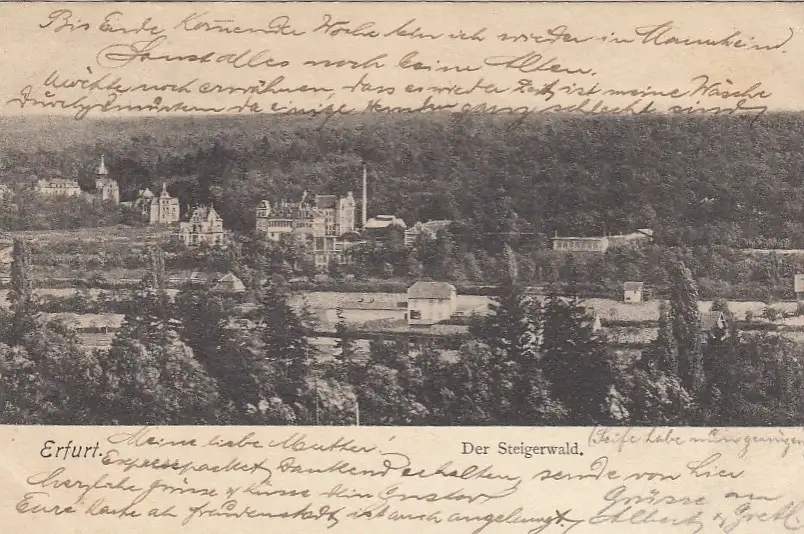 Bis Ende Kommender Woche bin ich wieder in Mannheim.
Sonst alles noch beim Alten.
Möchte noch erwähnen, dass es wieder Zeit ist meine Wäsche
da einige Hemden ganz schlecht sind
Erfurt.
Der Steigerwald.
(Seife habe nun genügen
Meine liebe Mutter!
Expresspacket dankend erhalten, sende von hier
herzliche Grüsse & Küsse dein Gustav
Grüsse an
Eure Karte ab Freudenstadt ist auch angelangt.
Albert & Gretl.